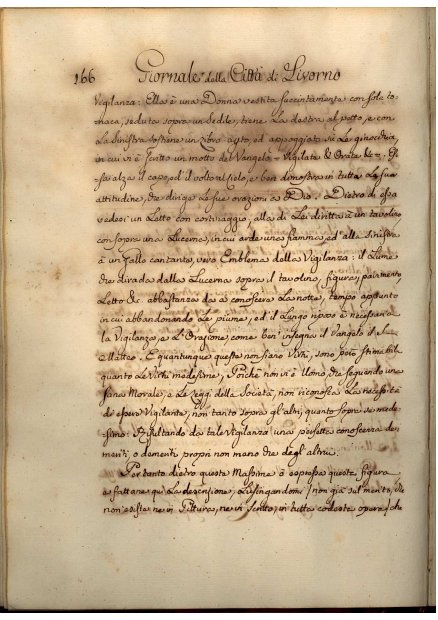 166 Giornale della Città di Livorno
Vigilanza: Ella è una Donna vestita succintamente con sole to-
naca, seduta sopra un sedile, tiene La destra al petto, e con
La sinistra sostiene un Libro aperto, ed appoggiato su Le ginocchia,
in cui vi è scritto un motto del Vangelo = Vigilate & Orate & =.
alza il capo, ed il volto al Cielo, e ben dimostra in tutta La sua
attitudine, che dirige Le sue orazioni a Dio. Dietro di essa
vedesi un Letto con cortinaggio, alla di Lei diritta à un tavolino
con sopra una Lucerna, in cui arde una fiamma, ed alla sinistra
à un Gallo cantante, vero Emblema della Vigilanza: il Lume
che dirada dalla Lucerna sopra il tavolino, figura, pavimento,
Letto & abbastanza da à conoscere La notte, tempo appunto
in cui abbandonando Le piume, ed il Lungo riposo è necessaria
la Vigilanza, e L'Orazione, come ben' insegna il Vangelo
a Matteo. E quantunque queste non siano Virtù, sono però stimabili
quanto Le Virtù medesime; Poichè non vi è Uomo, che seguendo una
sana Morale, e Le Leggi della Società, non riconosca La necessità
di essere Vigilante, non tanto sopra gl'altri, quanto sopra se mede-
simo: Risultando da tale Vigilanza una perfetta conoscenza de'
meriti, o demeriti propri non meno che degl'altrui.
Pertanto dietro queste Massime ò espressa questa figura
e fattane qui La descrizione, Lusingandomi (non già sul merito, che
non esiste ne in Pittura, ne in scritto, in tutte codeste opere) che